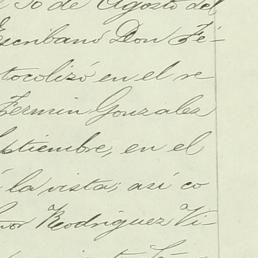 30 de Agosto del
Escribano Don Fé-
tocolizó en el re
Fermin Gonzales
eptiembre, en el
á la vista; así co
ñor Rodriguez Vi-